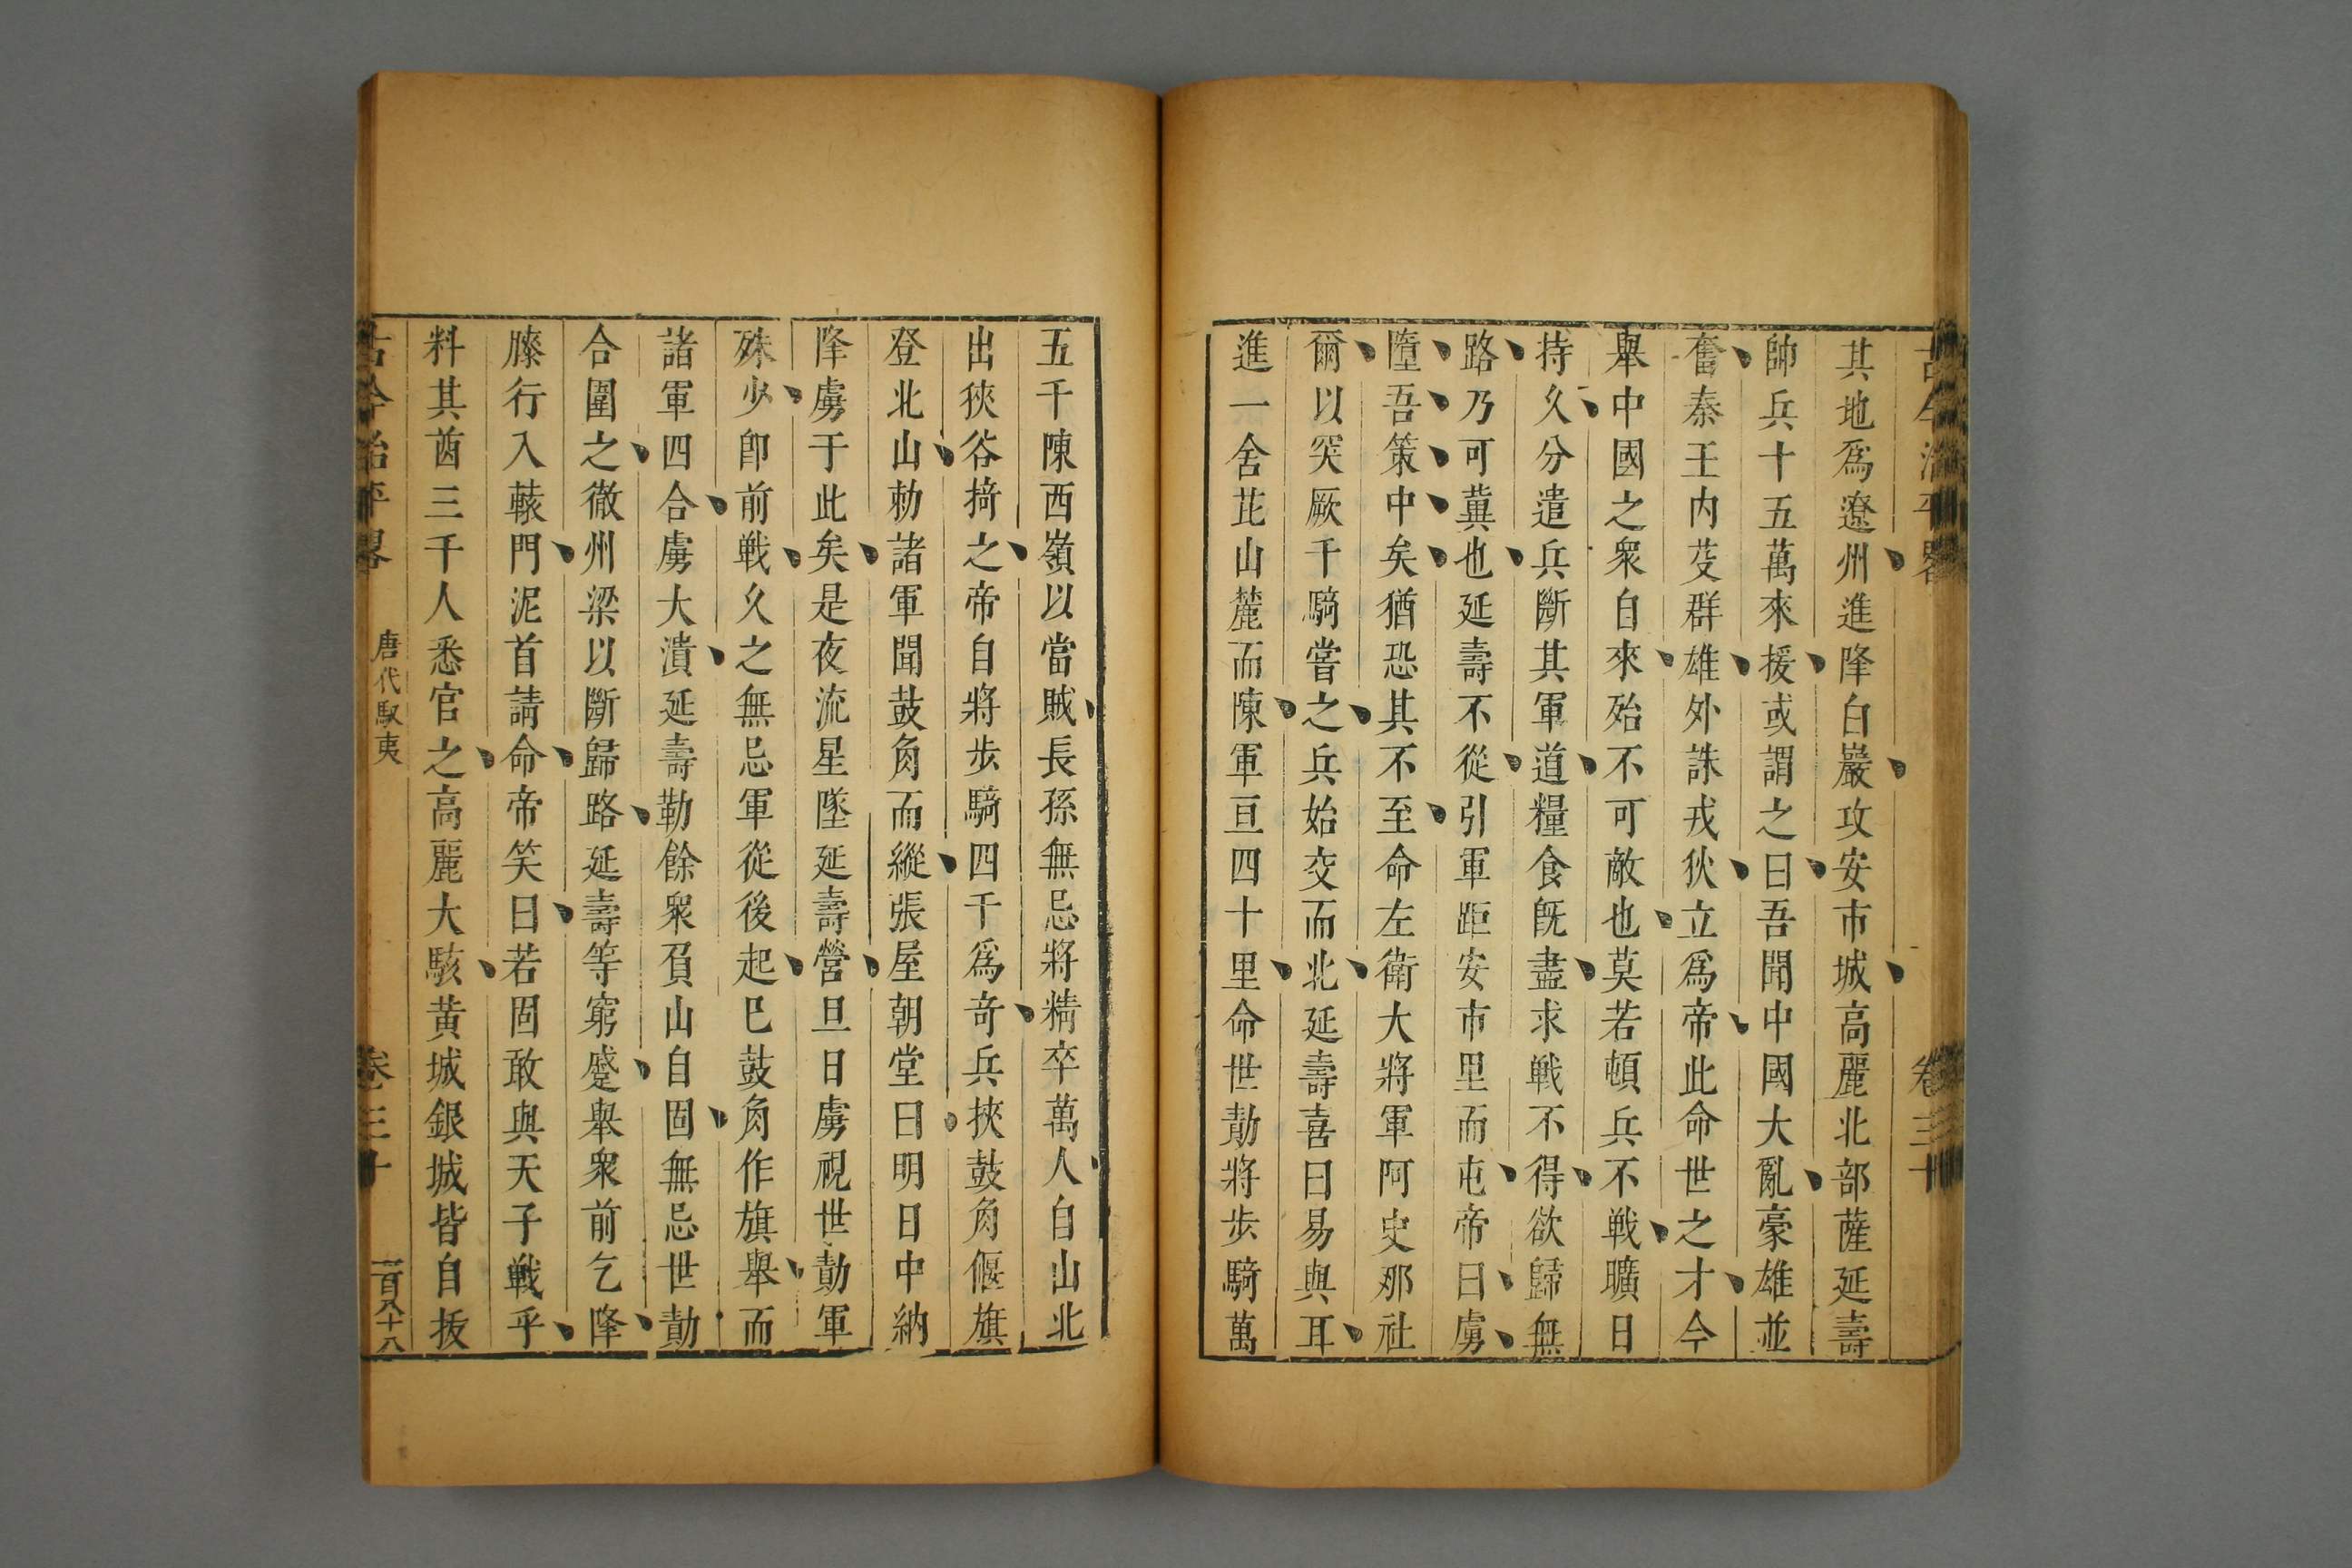 古今治平畧
卷三十
其地爲遼州進降白巖攻安市城高麗北部薩延壽
帥兵十五萬來援或謂之曰吾聞中國大亂豪雄並
奮秦王內芟群雄外誅戎狄立爲帝此命世之才今
舉中國之衆自來殆不可敵也莫若頓兵不戰曠日
持久分遣兵斷其軍道糧食旣盡求戰不得欲歸無
路乃可冀也延壽不從引軍距安市里而屯帝曰虜
墮吾策中矣猶恐其不至命左衛大將軍阿史那社
爾以突厥千騎嘗之兵始交而北延壽喜曰易與耳
進一舍芘山麓而陳軍亘四十里命世勣將步騎萬
五千陳西嶺以當賊長孫無忌將精卒萬人自山北
出狹谷掎之帝自將步騎四千爲奇兵挾鼓角偃旗
登北山勑諸軍聞鼓角而縱張屋朝堂曰明日中納
降虜于此矣是夜流星墜延壽營旦日虜視世勣軍
殊少卽前戰久之無忌軍從後起已鼓角作旗舉而
諸軍四合虜大潰延壽勒餘衆負山自固無忌世勣
合圍之徹州梁以斷歸路延壽等窮蹙舉衆前乞降
膝行入轅門泥首請命帝笑曰若固敢與天子戰乎
料其酋三千人悉官之高麗大駭黃城銀城皆自拔
古今治平畧
唐代馭夷
卷三十
一百八十八